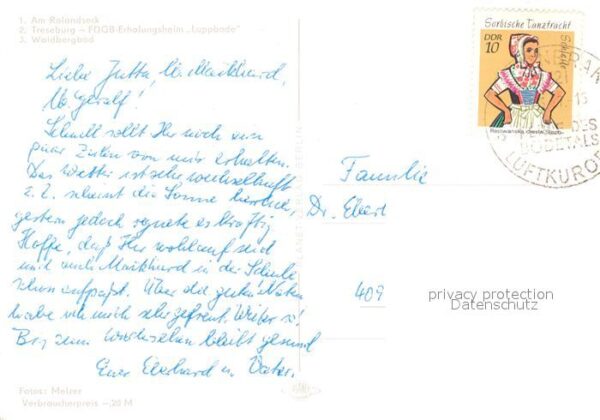 1. Am Rolandseck
2. Treseburg — FDGB-Erholungsheim „Luppbode"
3. Waldbergbad
Liebe Jutta, lb. Markhard,
lb. Geralf!
Schnell sollt Ihr noch ein
paar Zeilen von mir erhalten.
Das Wetter ist sehr wechselhaft
z. Z. scheint die Sonne herrlich,
gestern jedoch regnete es kräftig
Hoffe, daß Ihr wohlauf seid
und auch Markhard in der Schule
schön aufpaßt. Über die guten Noten
habe ich mich sehr gefreut. Weiter so!
Bis zum Wiedersehen bleibt gesund
Euer Eberhard u. Vater.
Fotos: Melzer
Verbraucherpreis —,20 M
PLANET-VERLAG BERLIN
Sorbische Tanztracht
Schleife
DDR
10
Familie
Dr. Ebert
409
privacy protection
Datenschutz
BODETALS
LUFTKURORT